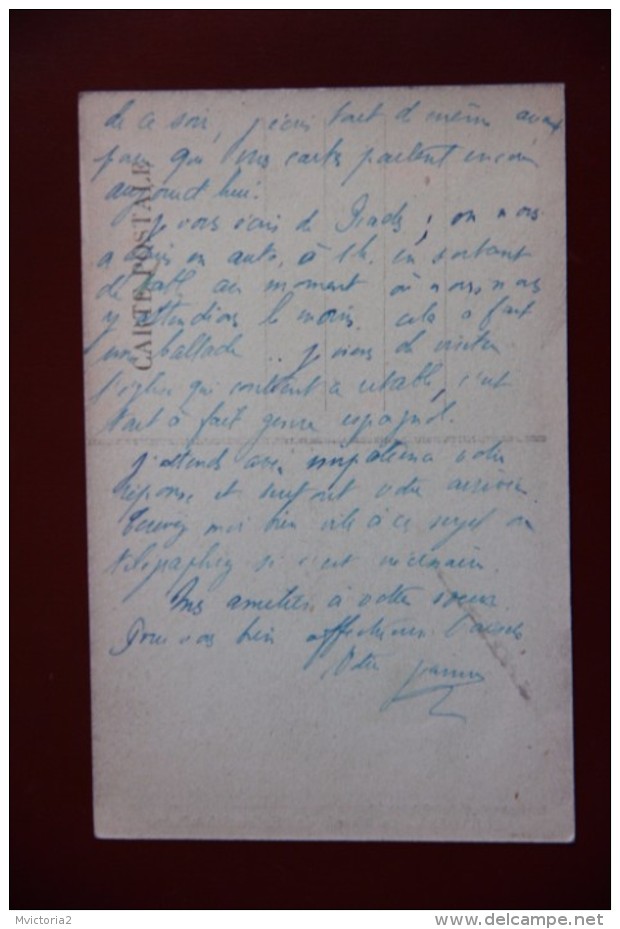 de ce soir, j'écris tout de même avant
pour que mes cartes partent encore
aujourd'hui.
Je vous écris de Prades ; on nous
a en auto, à 1h. en sortant
de table au moment où nous nous
y attendions le moins, cela a fait
une ballade .. je viens de visiter
l'église qui contient ce retable, c'est
tout à fait genre espagnol.
J'attends avec impatience votre
réponse et surtout votre arrivée.
Ecrivez moi bien vite à ce sujet ou
télégraphiez si c'est nécessaire.
Mes amitiés à votre soeur.
Pour vous bien affectueux baisers,
Votre
CARTE POSTALE
Mvictoria2
delcampe.net